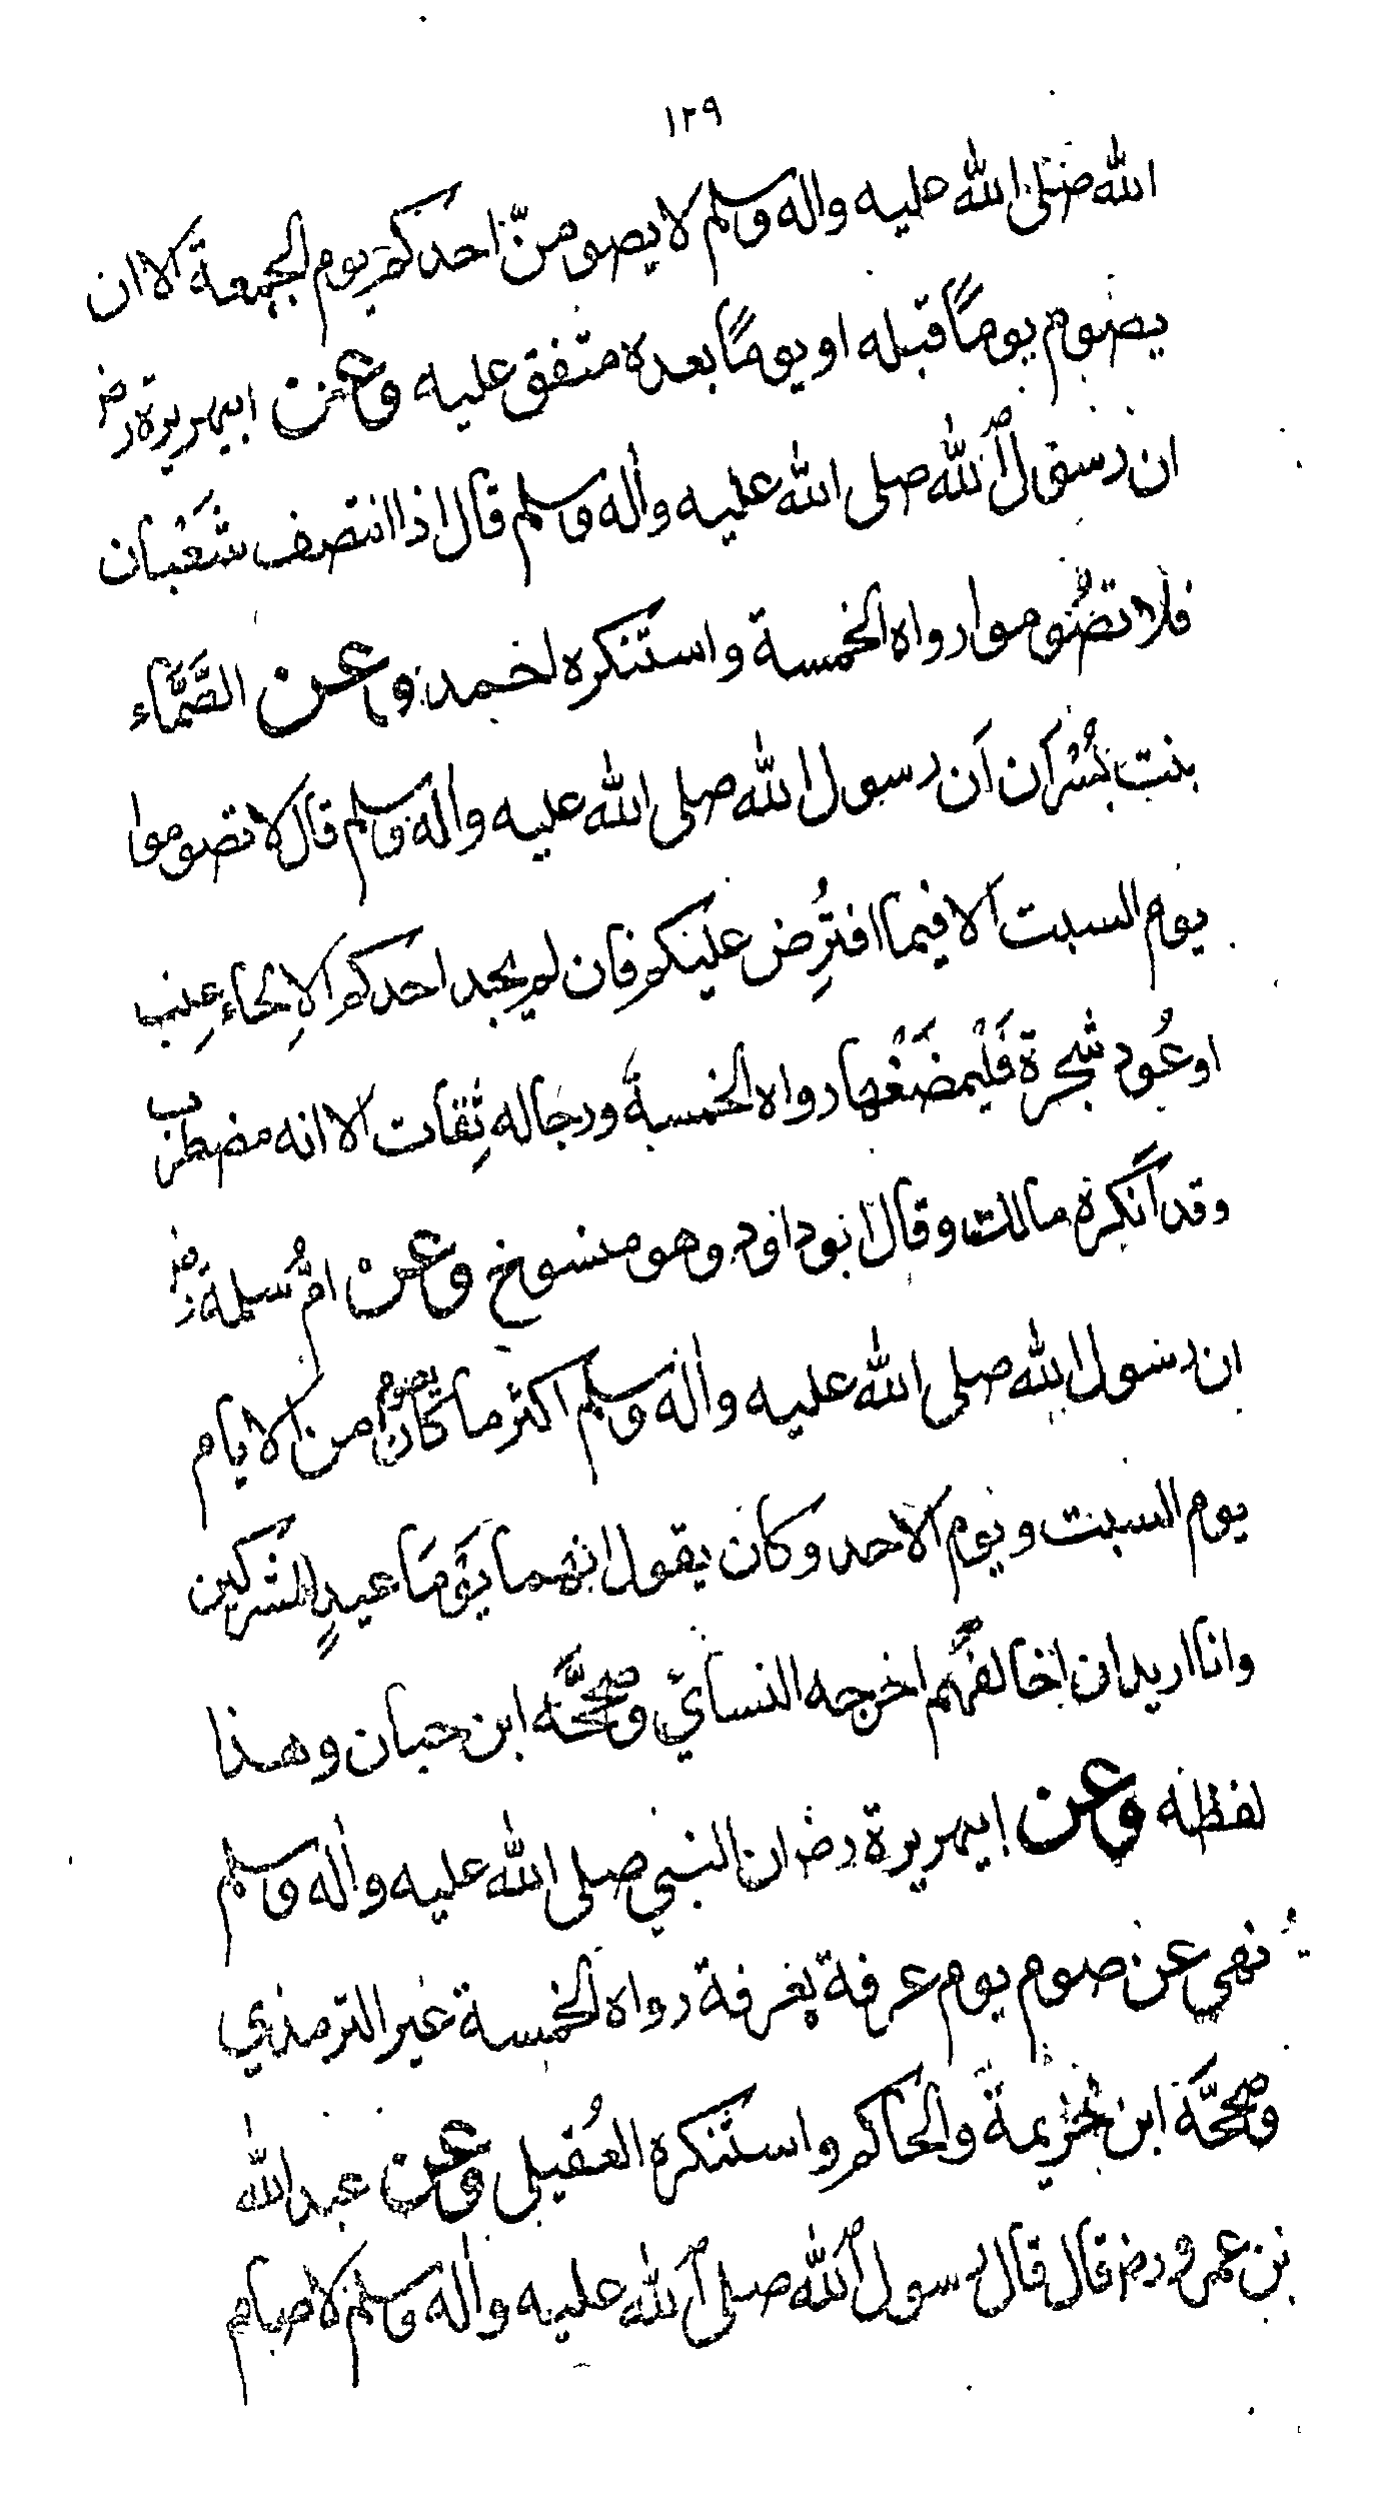 ١٢٩
الله صلى الله عليه واله وسلم لا يصومنّ احدكم يوم الجمعة الا ان
يصوم يومًا قبله او يومًا بعده متفق عليه وعن ابيهريرة رض
ان رسول الله صلى الله عليه واله وسلم قال اذا انتصف شَعْبان
فلا تصُوموا رواه الخمسة واستنكره احمد وعن الصَّمَّاء
بنت بُسْر ان رسول الله صلى الله عليه واله وسلم قال لا تصوموا
يوم السبت الا فيما افتُرِض عليكم فان لم يجد احدكم الا لِحاءِ عِنب
او عُود شجرة فَلْيمضَغْها رواه الخمسة ورجاله ثِقات الا انه مضطرب
وقد انكره مالك وقال ابوداود وهو منسوخ وعن امّ سلمة رض
ان رسول الله صلى الله عليه واله وسلم اكثر ما كان يصوم من الايام
يوم السبت ويوم الاحد وكان يقول انهما يَوْمَا عيدٍ للمشركين
وانا اريد ان اخالفهم اخرجه النسائي وصححَّه ابن حبان وهذا
لفظه وعن ابيهريرة رض ان النبي صلى الله عليه واله وسلم
نهى عن صوم يوم عرفة بعرفة رواه الخمسة غير الترمذي
وصححَّه ابن خُزيمة والحاكم واستنكره العُقيلي وعن عبدالله
بن عمرو رض قال قال رسول الله صلى الله عليه واله وسلم لا صام